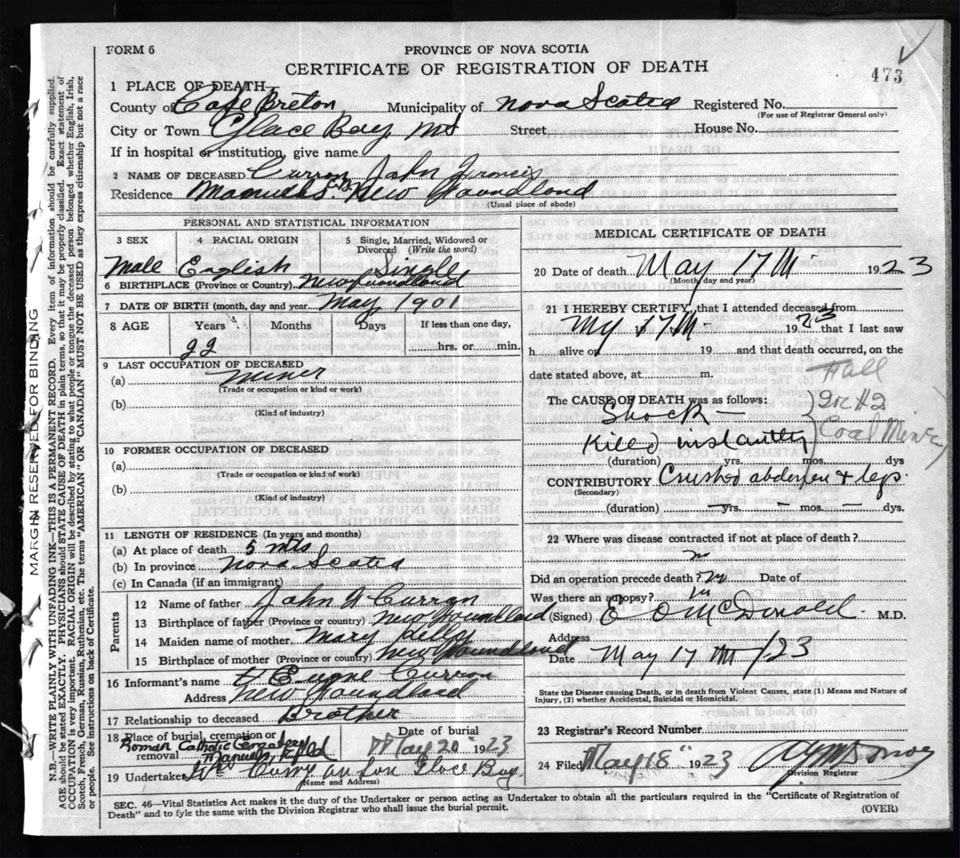 FORM 6
PROVINCE OF NOVA SCOTIA
CERTIFICATE OF REGISTRATION OF DEATH
473
1 PLACE OF DEATH
County of Cape Breton Municipality of Nova Scotia Registered No.
(For use of Registrar General only)
City or Town Glace Bay Street House No.
If in hospital or institution, give name
2 NAME OF DECEASED Curran John Francis
Residence Manuels New Foundland
(Usual place of abode)
PERSONAL AND STATISTICAL INFORMATION
3 SEX 4 RACIAL ORIGIN 5 Single, Married, Widowed or Divorced (Write the word)
Male English Single
6 BIRTHPLACE (Province or Country) Newfoundland
7 DATE OF BIRTH (month, day and year) May 1901
8 AGE Years Months Days If less than one day,
22 hrs. or min.
9 LAST OCCUPATION OF DECEASED
(a) Miner
(Trade or occupation or kind or work)
(b)
(Kind of industry)
10 FORMER OCCUPATION OF DECEASED
(a)
(Trade or occupation or kind of work)
(b)
(Kind of industry)
11 LENGTH OF RESIDENCE (In years and months)
(a) At place of death 5 mts
(b) In province Nova Scotia
(c) In Canada (if an immigrant)
Parents
12 Name of father John W Curran
13 Birthplace of father (Province or country) New Foundland
14 Maiden name of mother Mary Kelly
15 Birthplace of mother (Province or country) New Foundland
16 Informant's name Curran
Address New Foundland
17 Relationship to deceased Brother
18 Place of burial, cremation or removal Roman Catholic Cemetery Manuels Nfld Date of burial May 20" 1923
19 Undertaker Curry Glace Bay
(Name and Address)
MEDICAL CERTIFICATE OF DEATH
20 Date of death May 17th 1923
(Month day and year)
21 I HEREBY CERTIFY, that I attended deceased from
My 17th 1923 that I last saw
h alive on 19 and that death occurred, on the
date stated above, at m.
The CAUSE OF DEATH was as follows:
Shock —
Killed instantly
#2
Coal Mine
(duration) yrs. mos. dys
CONTRIBUTORY Crushed abdomen & legs
(Secondary)
(duration) — yrs. — mos. — dys.
22 Where was disease contracted if not at place of death?
Did an operation precede death? Date of
Was there an autopsy?
(Signed) McDonald M.D.
Address
Date May 17th /23
State the Disease causing Death, or in death from Violent Causes, state (1) Means and Nature of Injury, (2) whether Accidental, Suicidal or Homicidal.
23 Registrar's Record Number
24 Filed May 18" 1923
Division Registrar
SEC. 46—Vital Statistics Act makes it the duty of the Undertaker or person acting as Undertaker to obtain all the particulars required in the "Certificate of Registration of
Death" and to fyle the same with the Division Registrar who shall issue the burial permit.
(OVER)
MARGIN RESERVED FOR BINDING
N.B.—WRITE PLAINLY WITH UNFADING INK—THIS IS A PERMANENT RECORD. Every item of information should be carefully supplied.
AGE should be stated EXACTLY. PHYSICIANS should STATE CAUSE OF DEATH in plain terms, so that it may be properly classified. Exact statement of
OCCUPATION is very important. RACIAL ORIGIN will be described by stating to what people or tongue the deceased person belonged whether English, Irish,
Scotch, French, German, Russian, Ruthenian, etc. The terms "AMERICAN" OR "CANADIAN" MUST NOT BE USED as they express citizenship but not a race
or people. See instructions on back of Certificate.